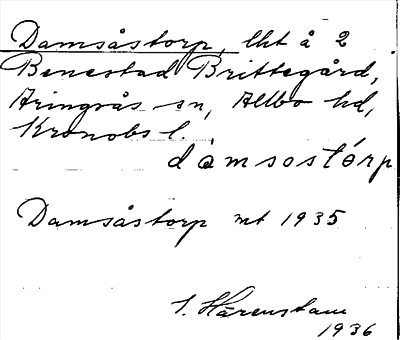 Damsåstorp, lht å 2
Benestad Brittegård,
Aringsås sn, Allbo hd,
Kronobs l.
dàmsostórp
Damsåstorp mt 1935
S. Hårenstam
1936